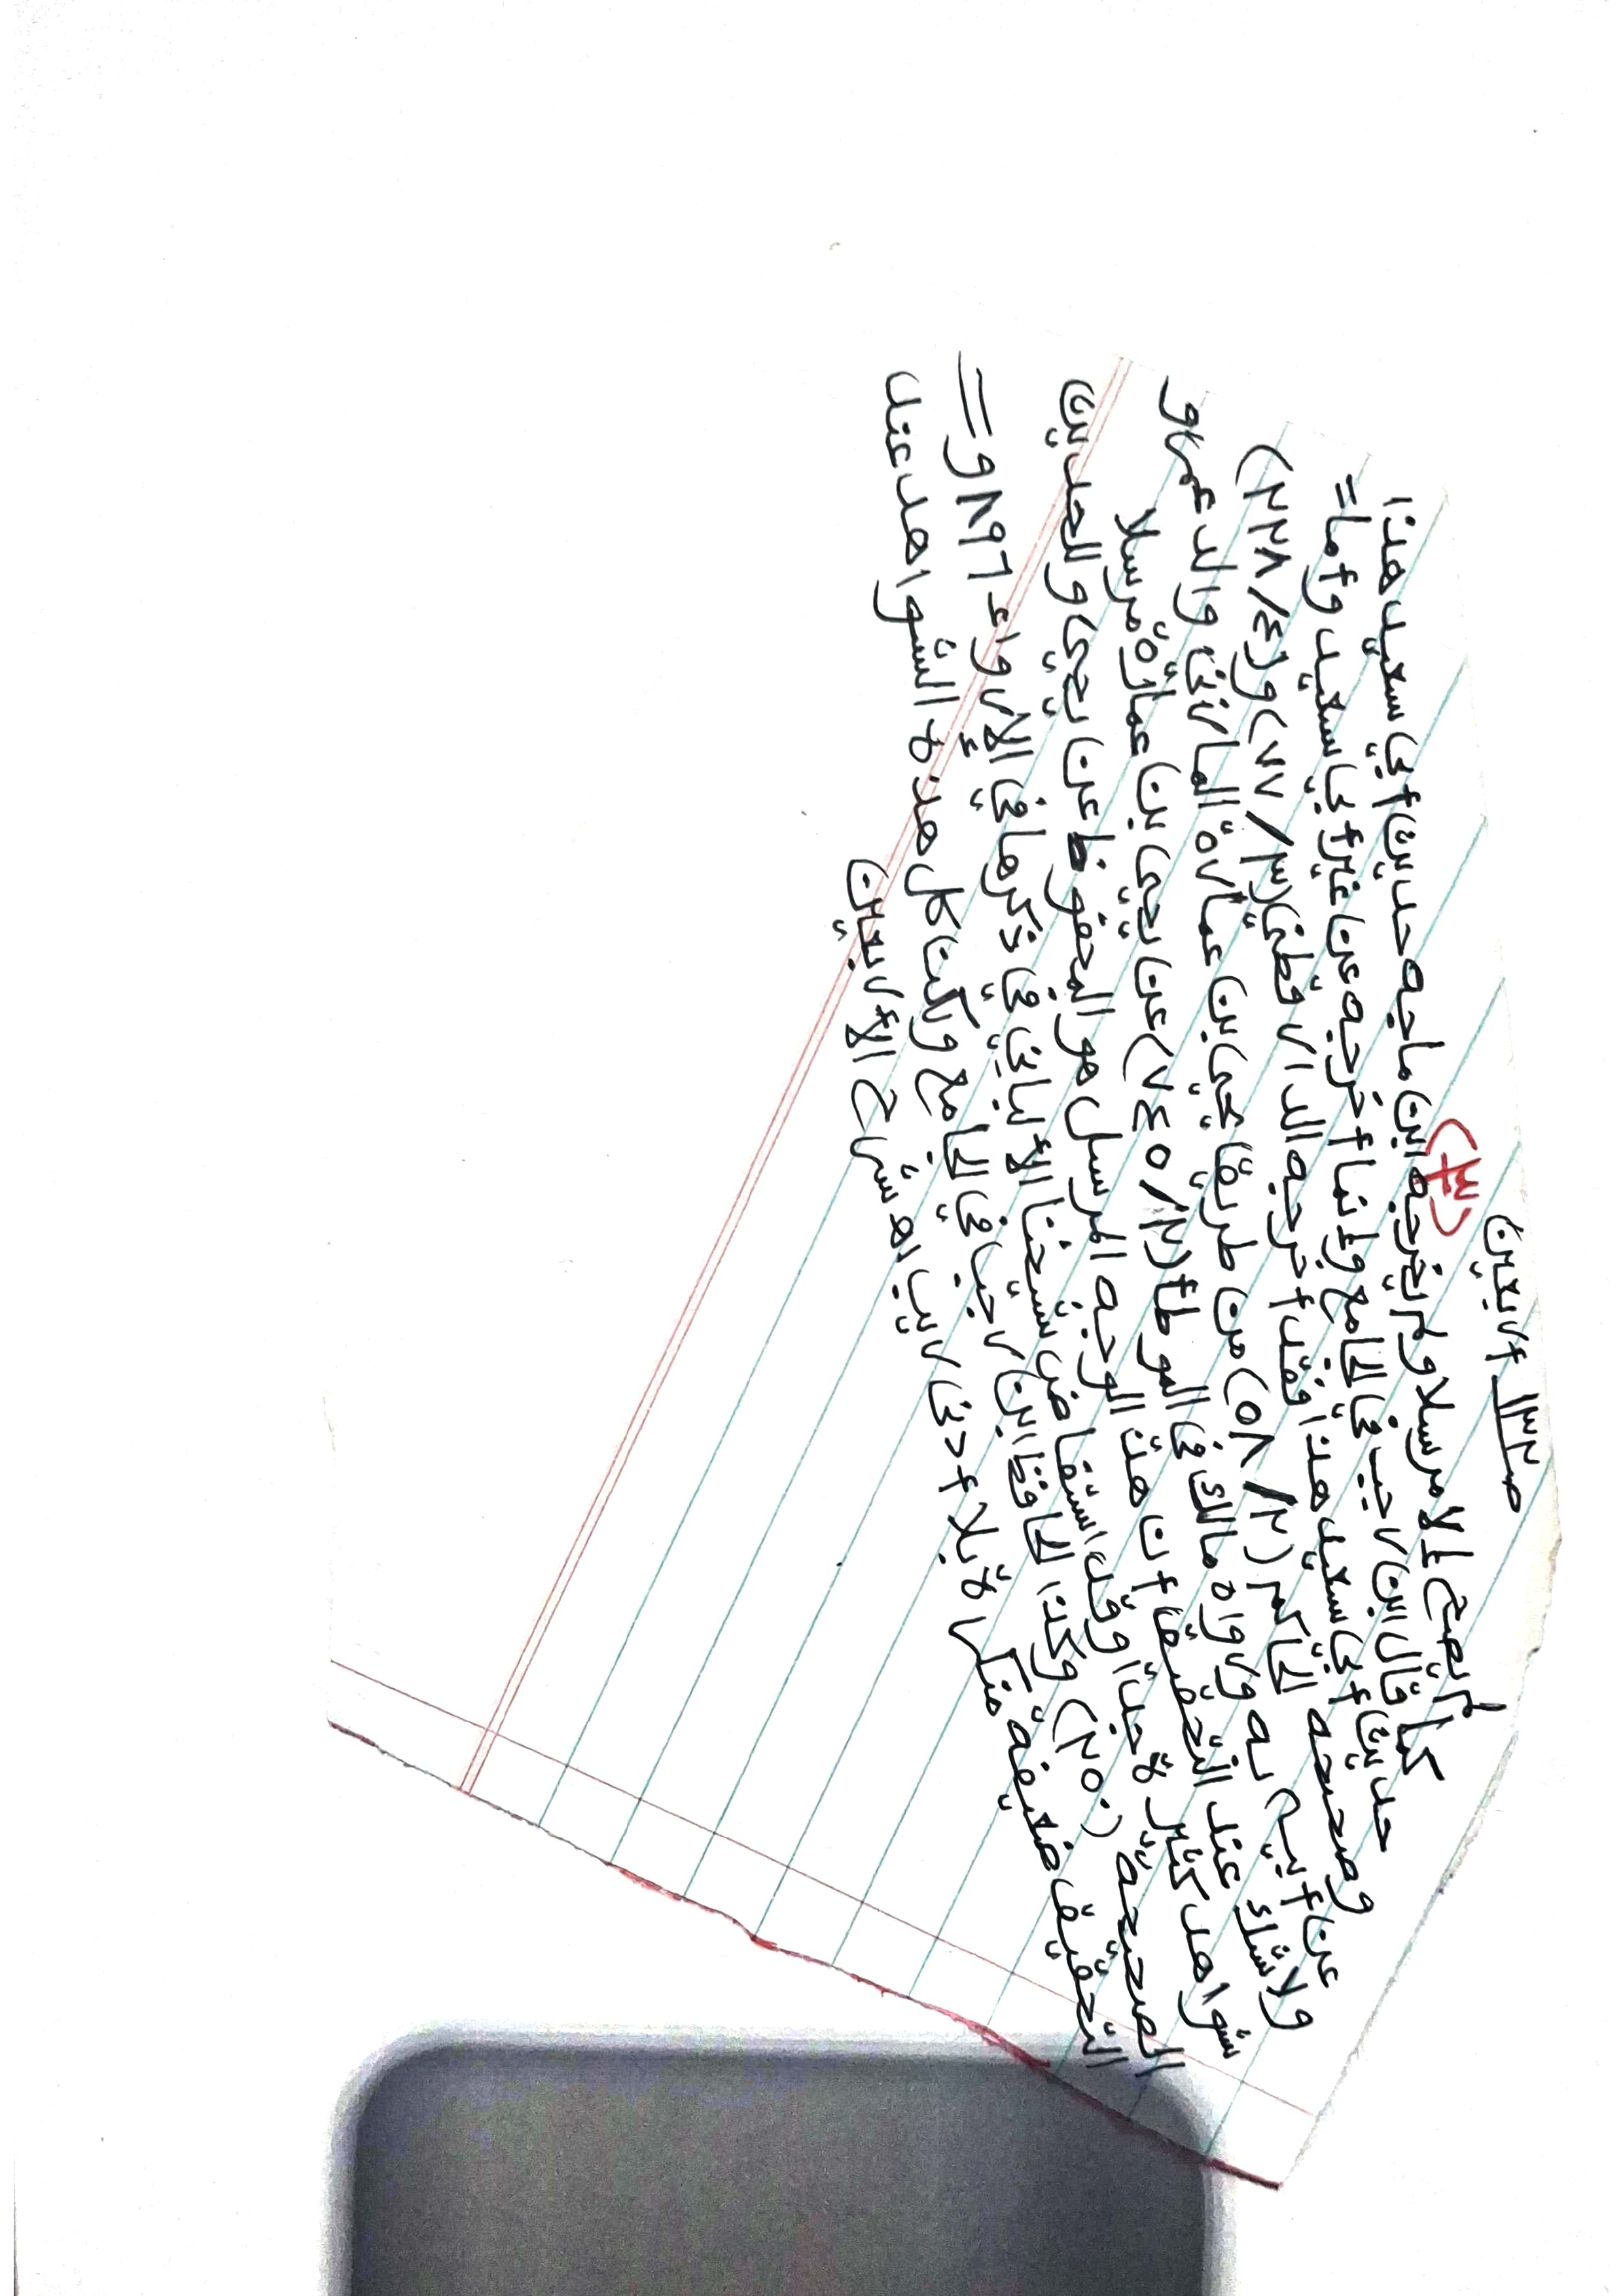 صـ١٣٢ أربعين
(٣)
كما لم يصح إلا مرسلا ولم يخرجه ابن ماجه حديث أبي سعيد هذا
حديث قال ابن رجب في الجامع وإنما أخرجه عن غير أبي سعيد وأما =
وصححه أبي سعيد هذا فقد أخرجه الدار قطني (٣/ ٧٧) و(٤/ ٢٢٨)
عن أبيه به الحاكم (٢/ ٥٨) من طريق يحيى بن عمارة المازني والد عمرو
ولا شك ورواه مالك في الموطأ (٢/ ٧٤٥) عن يحيى بن عمارة مرسلا
شواهد كثيرة عند التحقيق أن هذا الوجه المرسل هو المحفوظ عن يحيى وللحديث
الصحيحة (٢٥٠) جدا وقد استفاض شيخنا الألباني في ذكرها في الإرواء ٨٩٦ و=
التحقيق ضعيفة وكذا الحافظ ابن رجب في الجامع ولكن كل هذه الشواهد عند
منكرة بلا أدنى ريب اهـ شرح الأربعين